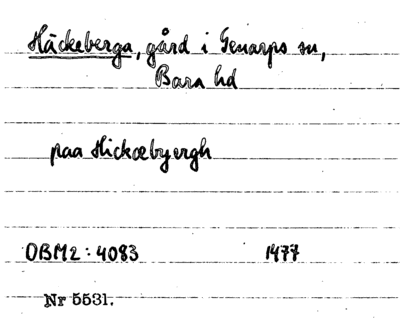 Häckeberga, gård i Genarps sn,
Bara hd
paa Hickæbyergh
OBM2:4083 1477
Nr 5531.